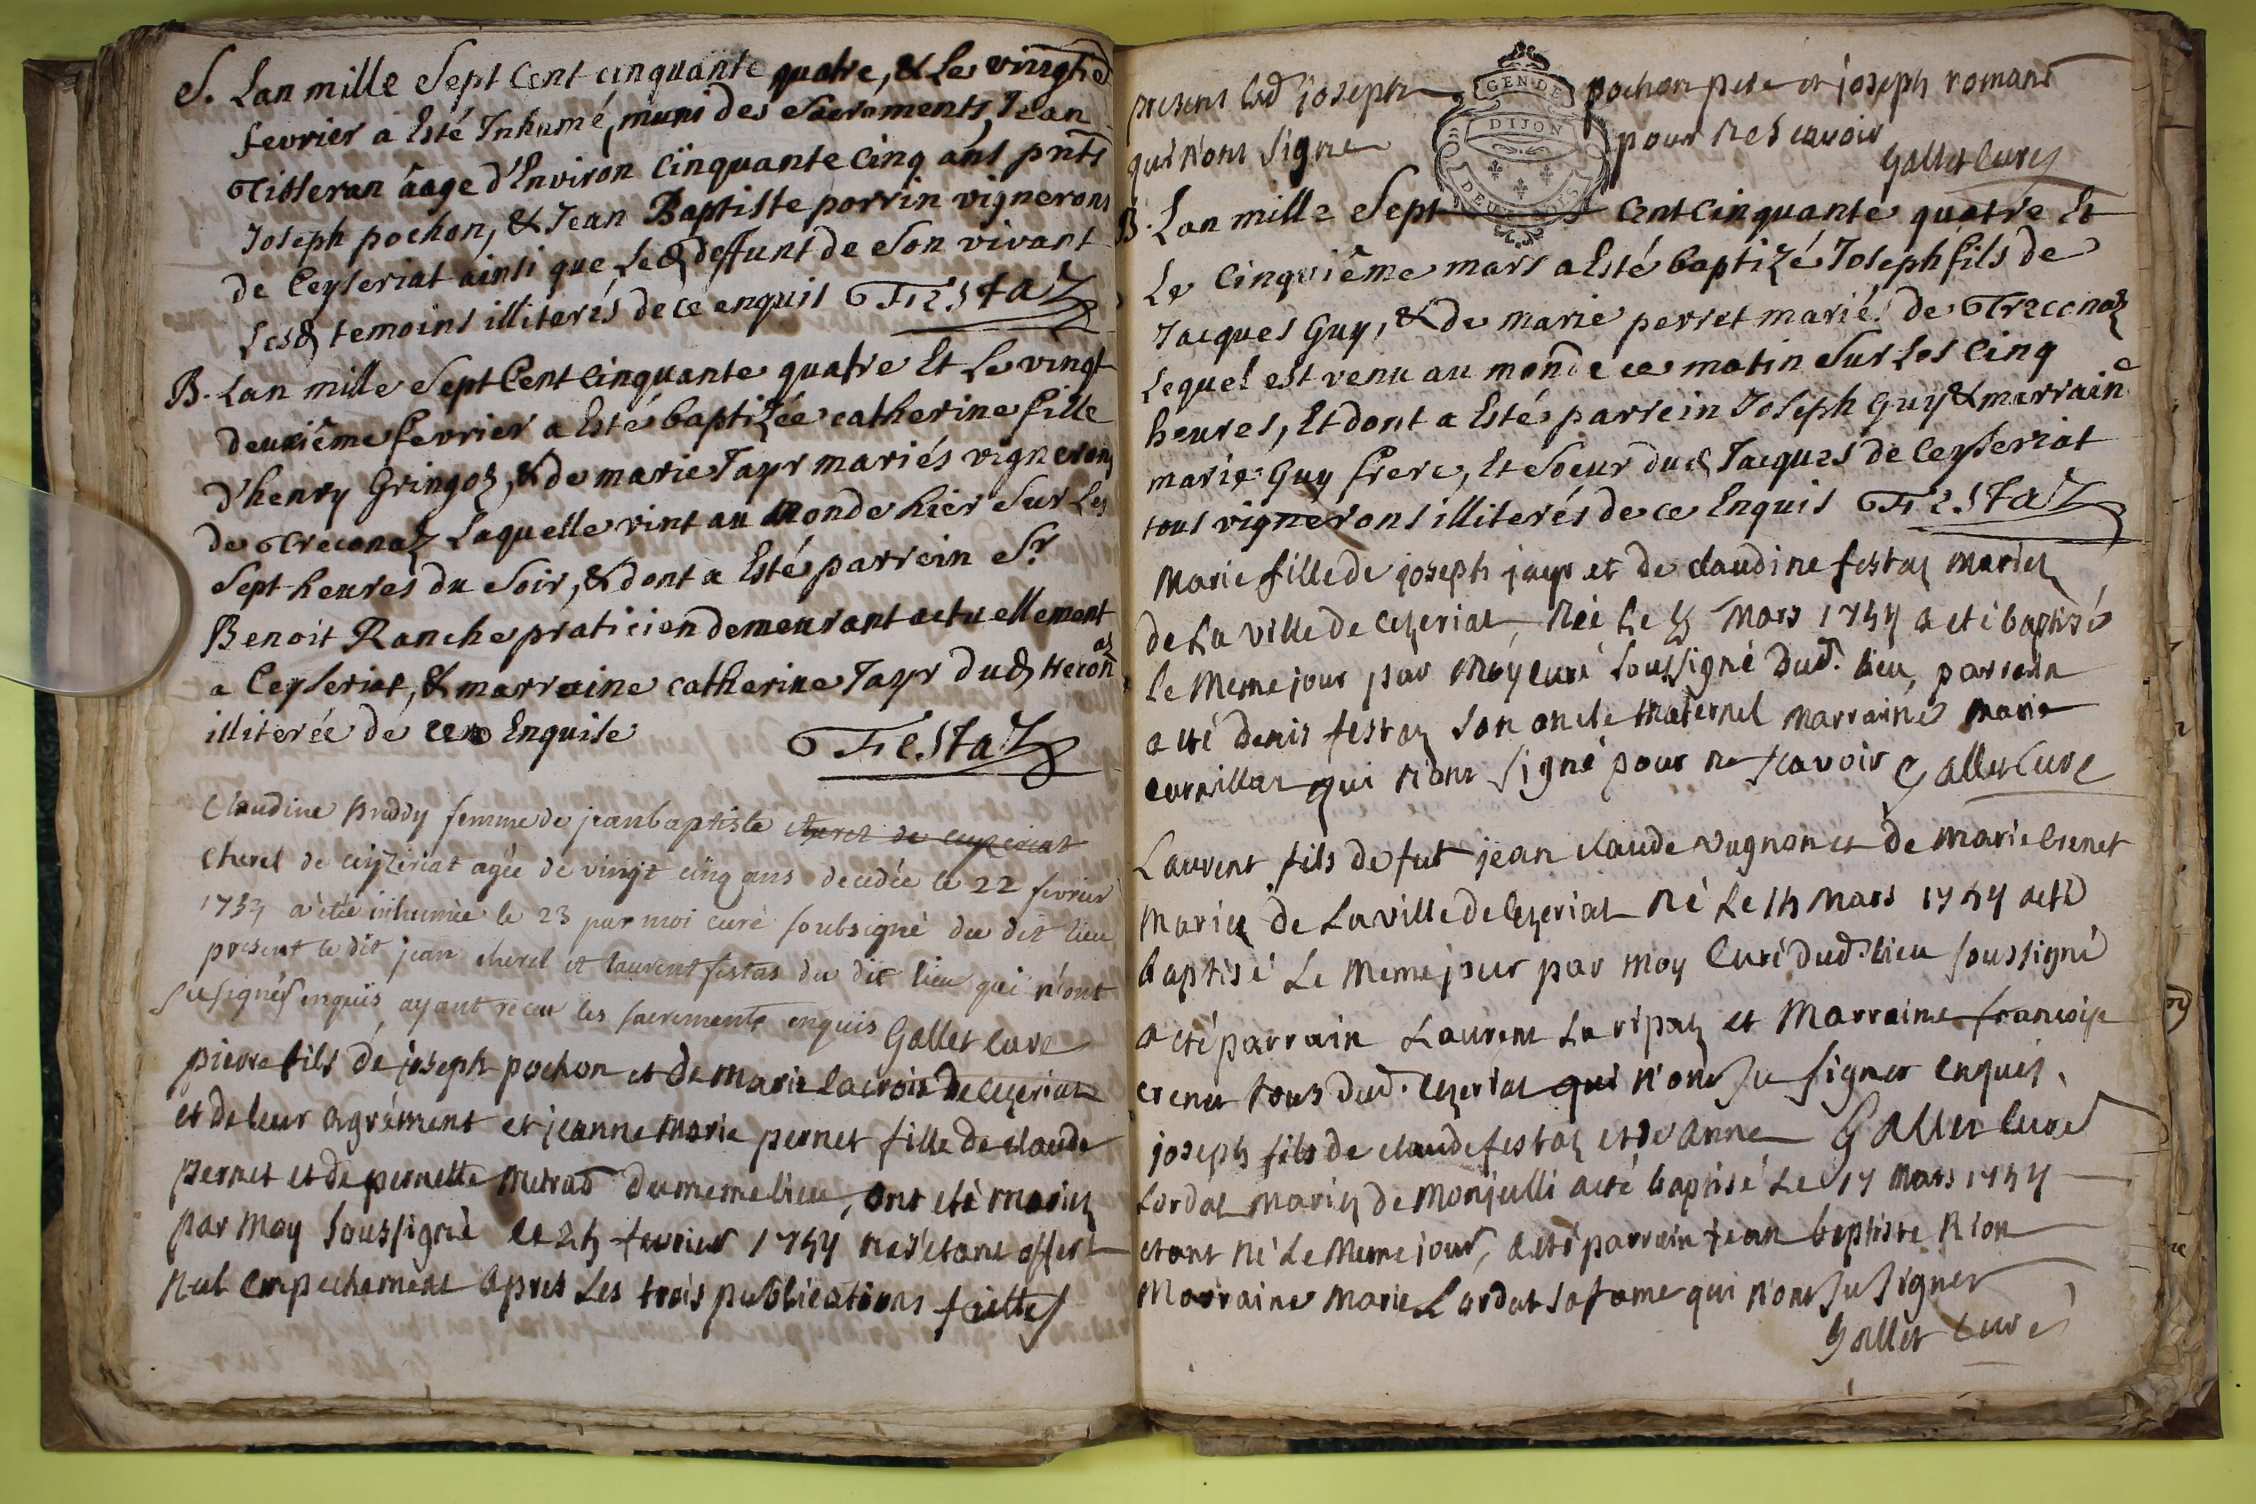 S. Lan mille Sept Cent cinquante quatre, & Le vingtie
fevrier a Esté Inhumé, muni des Sacraments, Jean
Tisseran âage d'Environ Cinquante Cinq ans pnts
Joseph pochon, & Jean Baptiste porrin vignerons
de Ceyseriat ainsi que Led deffunt de Son vivant
Lesd temoins illiterés de ce enquis Festaz
B. Lan mille Sept Cent Cinquante quatre Et Le vingt
deuxiême fevrier a Esté baptizée catherine fille
D'henry Gringoz, & de marie Jayr mariés vignerons
de Treconaz Laquelle vint au Monde hier Sur Les
Sept heures du Soir, & dont a Esté parrein Sr.
Benoit Ranche praticien demeurant actuellement
a Ceyseriat, & marraine catherine Jayr dud treconaz
illiterée de ce Enquise
Festaz
Claudine Buddy femme de jean baptiste cherel de ceyzeriat
Cherel de ceyzériat agée de vingt cinq ans decedée le 22 fevrier
1754 a étée inhumée le 23 par moi curé soubsigné du dit lieu
présent le dit jean cherel et laurent festas du dit lieu qui n'ont
su signés enquis ayant recu les sacrements enquis Gallet curé
pierre fils de joseph pochon et de Marie lacroix de Cezeriat
et de leur agrément et jeanne Marie pernet fille de claude
pernet et de pernette Metrad du meme lieu, ont été mariez
par Moy soussigné le 25 fevrier 1754 ne s'étant offert
nul empechement apres Les trois publications faittes
presens led joseph pochon pere et joseph romand
qui n'ont signé pour ne scavoir
GEN. DE
DIJON
DEUX SOLS
Gallet Curé
B. Lan mille Sept Cent Cinquante quatre Et
Le Cinquiême mars a Esté baptizé Joseph fils de
Jacques Guy, & de marie perret mariés de Treconaz
Lequel est venu au monde ce matin Sur Les Cinq
heures, Et dont a Esté parrein Joseph Guy & marraine
marie Guy frere, Et Soeur dud Jacques de Ceyseriat
tous vignerons illiterés de ce Enquis Festaz
Marie fille de joseph jayr et de claudine festaz mariez
de La ville de Cezeriat, Née Le Mars 1754 a eté baptisée
le Meme jour par Moy curé soussigné dud. lieu, parrain
a eté denis festaz son oncle maternel marraine marie
qui n'ont signé pour ne scavoir Gallet Curé
Laurent fils de fut jean claude vugnon et de Marie Crenet
Mariez de La ville de Cezeriat Né Le 15 Mars 1754 a eté
baptisé Le Meme jour par Moy Curé dud. lieu soussigné
a eté parrain Laurent La ripaz et Marraine francoise
crenet tous dud. Cezeriat qui n'ont su signer enquis.
joseph fils de claude festaz et de anne Gallet curé
Lordat mariez de Monjulli a eté baptisé Le 17 Mars 1754
etant Né Le Meme jour, a eté parrain jean baptiste Rion
Marraine Marie Lordat sa fame qui n'ont su signer
Gallet curé